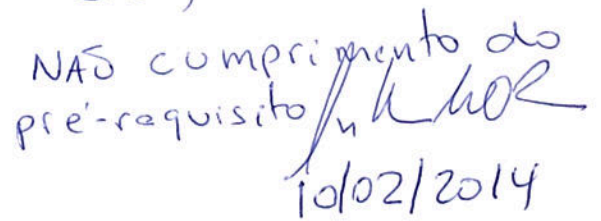 NÃO cumprimento do
pré-requisito
10/02/2014